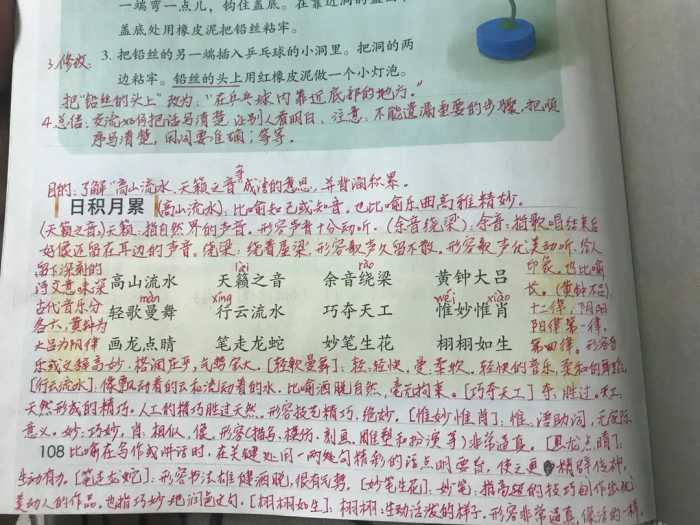 一端弯一点儿，钩住盖底。在靠近洞的盖
盖底处用橡皮泥把铅丝粘牢。
3.修改:
3. 把铅丝的另一端插入乒乓球的小洞里。把洞的两
边粘牢。铅丝的头上用红橡皮泥做一个小灯泡。
把"铅丝的头上"改为:"在乒乓球内靠近底部的地方。"
4.总结:交流如何把话写清楚,让别人看明白、注意:不能遗漏重要的步骤,把顺
序写清楚,用词要准确;等等。
目的:了解"高山流水、天籁之音"等成语的意思,并背诵积累。
日积月累
[高山流水]:比喻知己或知音。也比喻乐曲高雅精妙。
(天籁之音)天籁:指自然界的声音。形容声音十分动听。(余音绕梁):余音:指歌唱结束后
好像还留在耳边的声音。绕梁:绕着屋梁,形容歌声久留不散。形容歌声优美动听,给人
留下深刻的
印象。也比喻
lài
rào
高山流水 天籁之音 余音绕梁 黄钟大吕
诗文意味深
长。(黄钟大吕)
màn
xíng
wéi
xiào
古代音乐分
十二律,阴阳
轻歌曼舞 行云流水 巧夺天工 惟妙惟肖
各六,黄钟为
阳律第一律,
画龙点睛 笔走龙蛇 妙笔生花 栩栩如生
大吕为阴律
第四律。形容音
乐或文辞高妙:格调庄严,气势宏大。[轻歌曼舞]:轻:轻快,曼:柔软。轻快的音乐,柔和的舞蹈。
[行云流水]:像飘动着的云和流动着的水。比喻洒脱自然,毫无拘束。[巧夺天工]夺:胜过。天工:
天然形成的精巧。人工的精巧胜过天然。形容技艺精巧,绝妙。[惟妙惟肖]:惟:语助词,无实际
意义。妙:巧妙,肖:相似,像。形容(描写、模仿、刻画、雕塑和扮演等)非常逼真。[画龙点睛]:
108
比喻在写作或讲话时,在关键处用一两句精彩的话点明要旨,使之更 精辟传神,
生动有力。[笔走龙蛇]:形容书法雄健洒脱,很有气势。[妙笔生花]:妙笔:指高超的技巧创作出优
美动人的作品。也指巧妙地润色文句。[栩栩如生]:栩栩:生动活泼的样子。形容非常逼真,像活的一样。